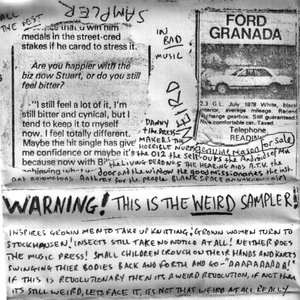 ALL THE BEST
SAMPLER
medals in the street-cred
stakes if he cared to stress it.
Are you happier with the
biz now Stuart, or do you still
feel bitter?
"I still feel a lot of it, I'm
still bitter and cynical, but I
tend to keep it to myself
now. I feel totally different.
Maybe the hit single has give
me confidence or maybe it's
because now with B
IN
BAD
MUSIC
WEIRD
FORD
GRANADA
2.3 G.L. July 1978 White, black
interior, average mileage. Recon
exchange gearbox. Still guaranteed.
Very comfortable car. Taxed.
Telephone
READING
genuine reason for sale
DANNY
& the DRESS
MAKERS the
HORRIBLE NURDS
the 012 the
the LIVING DEADBEATS the HEARING AIDS
door and the window the good missionaries the
for the people BLANK SPACE
WARNING! THIS IS THE WEIRD SAMPLER!
INSPIRES GROWN MEN TO TAKE UP KNITTING! GROWN WOMEN TURN TO
STOCKHAUSEN! INSECTS STILL TAKE NO NOTICE AT ALL! NEITHER DOES
THE MUSIC PRESS! SMALL CHILDREN CROUCH ON THEIR HANDS AND KNEES
SWINGING THIER BODIES BACK AND FORTH AND GO-DAADAADADAD!
IF THIS IS REVOLUTIONARY THEN ITS A WEIRD REVOLUTION, IF NOT THEN
ITS STILL WEIRD, LETS FACE IT, ITS NOT THAT WEIRD AT ALL REALLY